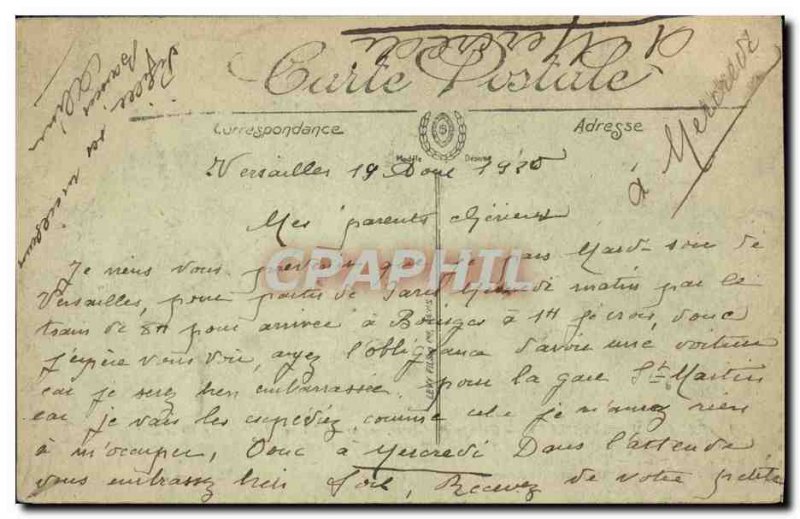 à Mercredi
Carte Postale
Correspondance
Adresse
Modèle Déposé
à Mercredi
Versailles 19 Aout 1920
Mes parents chéries
Je viens vous prévenir que je pars Mardi soir de
Versailles, pour partir de Paris Mercredi matin par le
train de 8H pour arrivée à Bourges à 1H je crois, donc
j'espère vous voir, ayez l'obligeance d'avoir une voiture
car je serez bien embarrassée. pour la gare St Martin
car je vais les expediez, comme cela je n'aurez rien
à m'occuper, Donc à Mercredi Dans l'attende
vous embrassez bien fort, Recevez de votre petite
ses meilleurs
baisers
CPAPHIL
LEVY FILS & Cie, PARIS